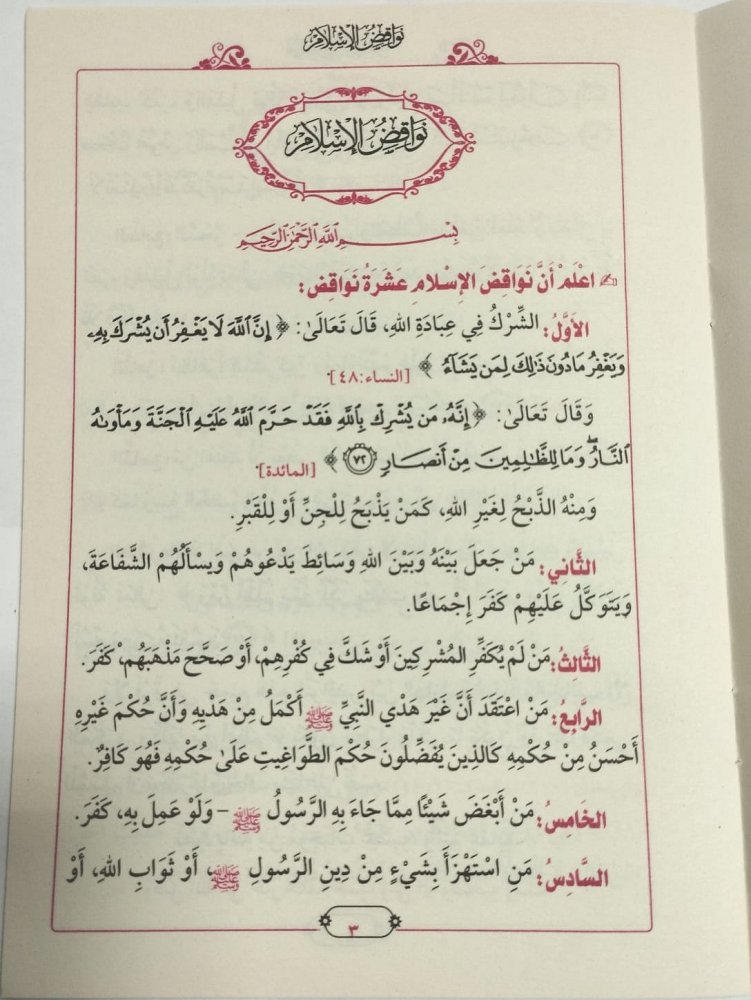 نَوَاقِضُ الإِسْلَامِ
نَوَاقِضُ الإِسْلَامِ
بِسْمِ اللَّهِ الرَّحْمَنِ الرَّحِيمِ
اعْلَمْ أَنَّ نَوَاقِضَ الإِسْلَامِ عَشَرَةُ نَوَاقِضَ:
الأَوَّلُ: الشِّرْكُ فِي عِبَادَةِ اللهِ، قَالَ تَعَالَىٰ: ﴿ إِنَّ ٱللَّهَ لَا يَغْفِرُ أَن يُشْرَكَ بِهِۦ
وَيَغْفِرُ مَا دُونَ ذَٰلِكَ لِمَن يَشَآءُ ﴾ [النساء:٤٨].
وَقَالَ تَعَالَىٰ: ﴿إِنَّهُۥ مَن يُشْرِكْ بِٱللَّهِ فَقَدْ حَرَّمَ ٱللَّهُ عَلَيْهِ ٱلْجَنَّةَ وَمَأْوَىٰهُ
ٱلنَّارُ ۖ وَمَا لِلظَّٰلِمِينَ مِنْ أَنصَارٍ ٧٢ ﴾ [المائدة].
وَمِنْهُ الذَّبْحُ لِغَيْرِ اللهِ، كَمَنْ يَذْبَحُ لِلْجِنِّ أَوْ لِلْقَبْرِ.
الثَّانِي: مَنْ جَعَلَ بَيْنَهُ وَبَيْنَ اللهِ وَسَائِطَ يَدْعُوهُمْ وَيَسْأَلُهُمْ الشَّفَاعَةَ،
وَيَتَوَكَّلُ عَلَيْهِمْ كَفَرَ إِجْمَاعًا.
الثَّالِثُ: مَنْ لَمْ يُكَفِّرِ المُشْرِكِينَ أَوْ شَكَّ فِي كُفْرِهِمْ، أَوْ صَحَّحَ مَذْهَبَهُم، كَفَرَ.
الرَّابِعُ: مَنْ اعْتَقَدَ أَنَّ غَيْرَ هَدْيِ النَّبِيِّ ﷺ أَكْمَلُ مِنْ هَدْيِهِ وَأَنَّ حُكْمَ غَيْرِهِ
أَحْسَنُ مِنْ حُكْمِهِ كَالذِينَ يُفَضِّلُونَ حُكْمَ الطَّوَاغِيتِ عَلَىٰ حُكْمِهِ فَهُوَ كَافِرٌ.
الخَامِسُ: مَنْ أَبْغَضَ شَيْئًا مِمَّا جَاءَ بِهِ الرَّسُولُ ﷺ – وَلَوْ عَمِلَ بِهِ، كَفَرَ.
السَّادِسُ: مَنِ اسْتَهْزَأَ بِشَيْءٍ مِنْ دِينِ الرَّسُولِ ﷺ، أَوْ ثَوَابِ اللهِ، أَوْ
٣